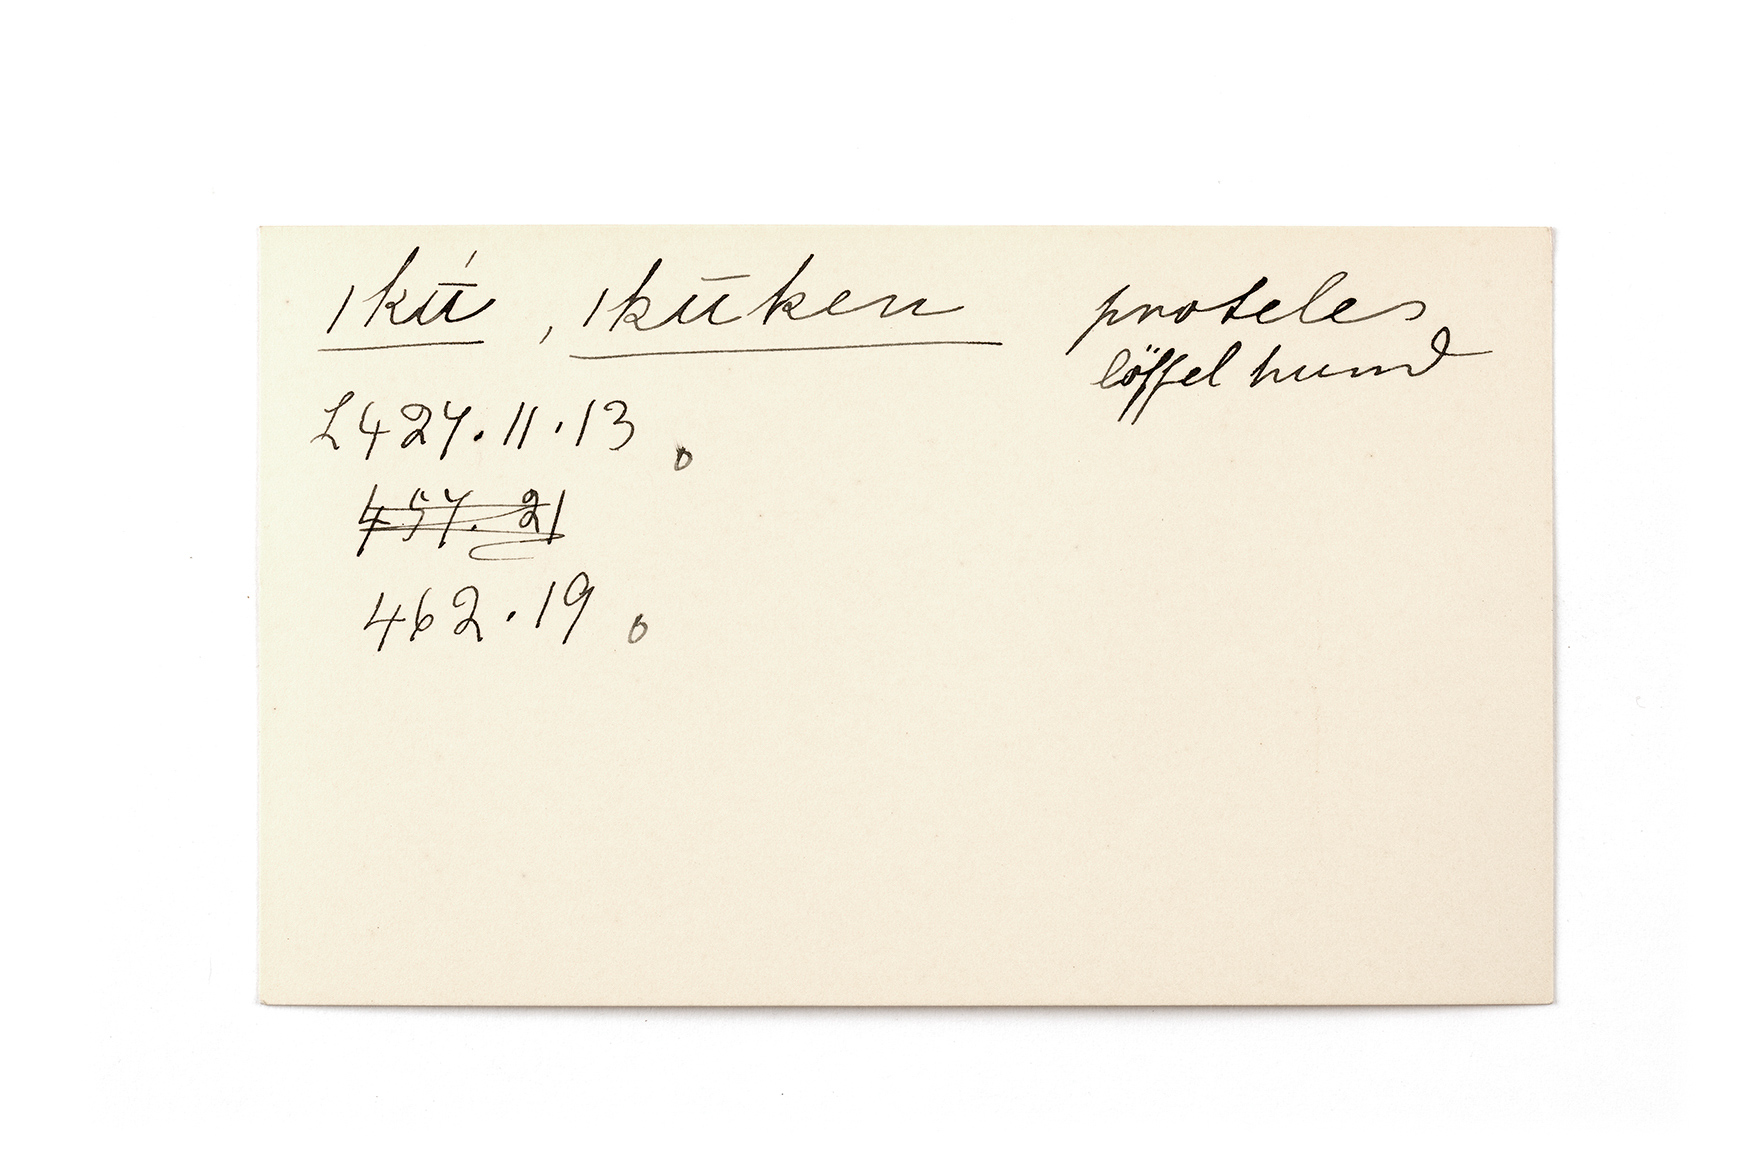 |kū́, |kūken proteles
löffel hund
L 427.11.13 o
457. 21
462.19 o